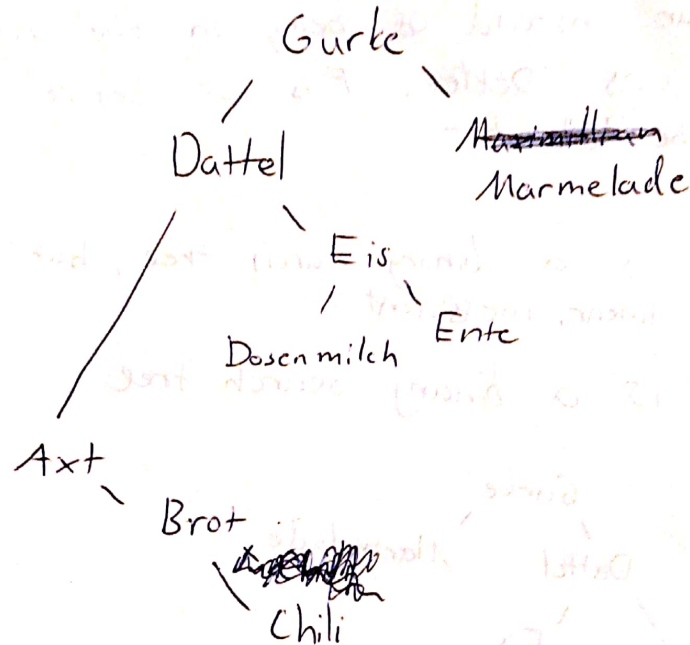 Gurke
Dattel
Marmelade
Eis
Dosenmilch
Ente
Axt
Brot
Chili